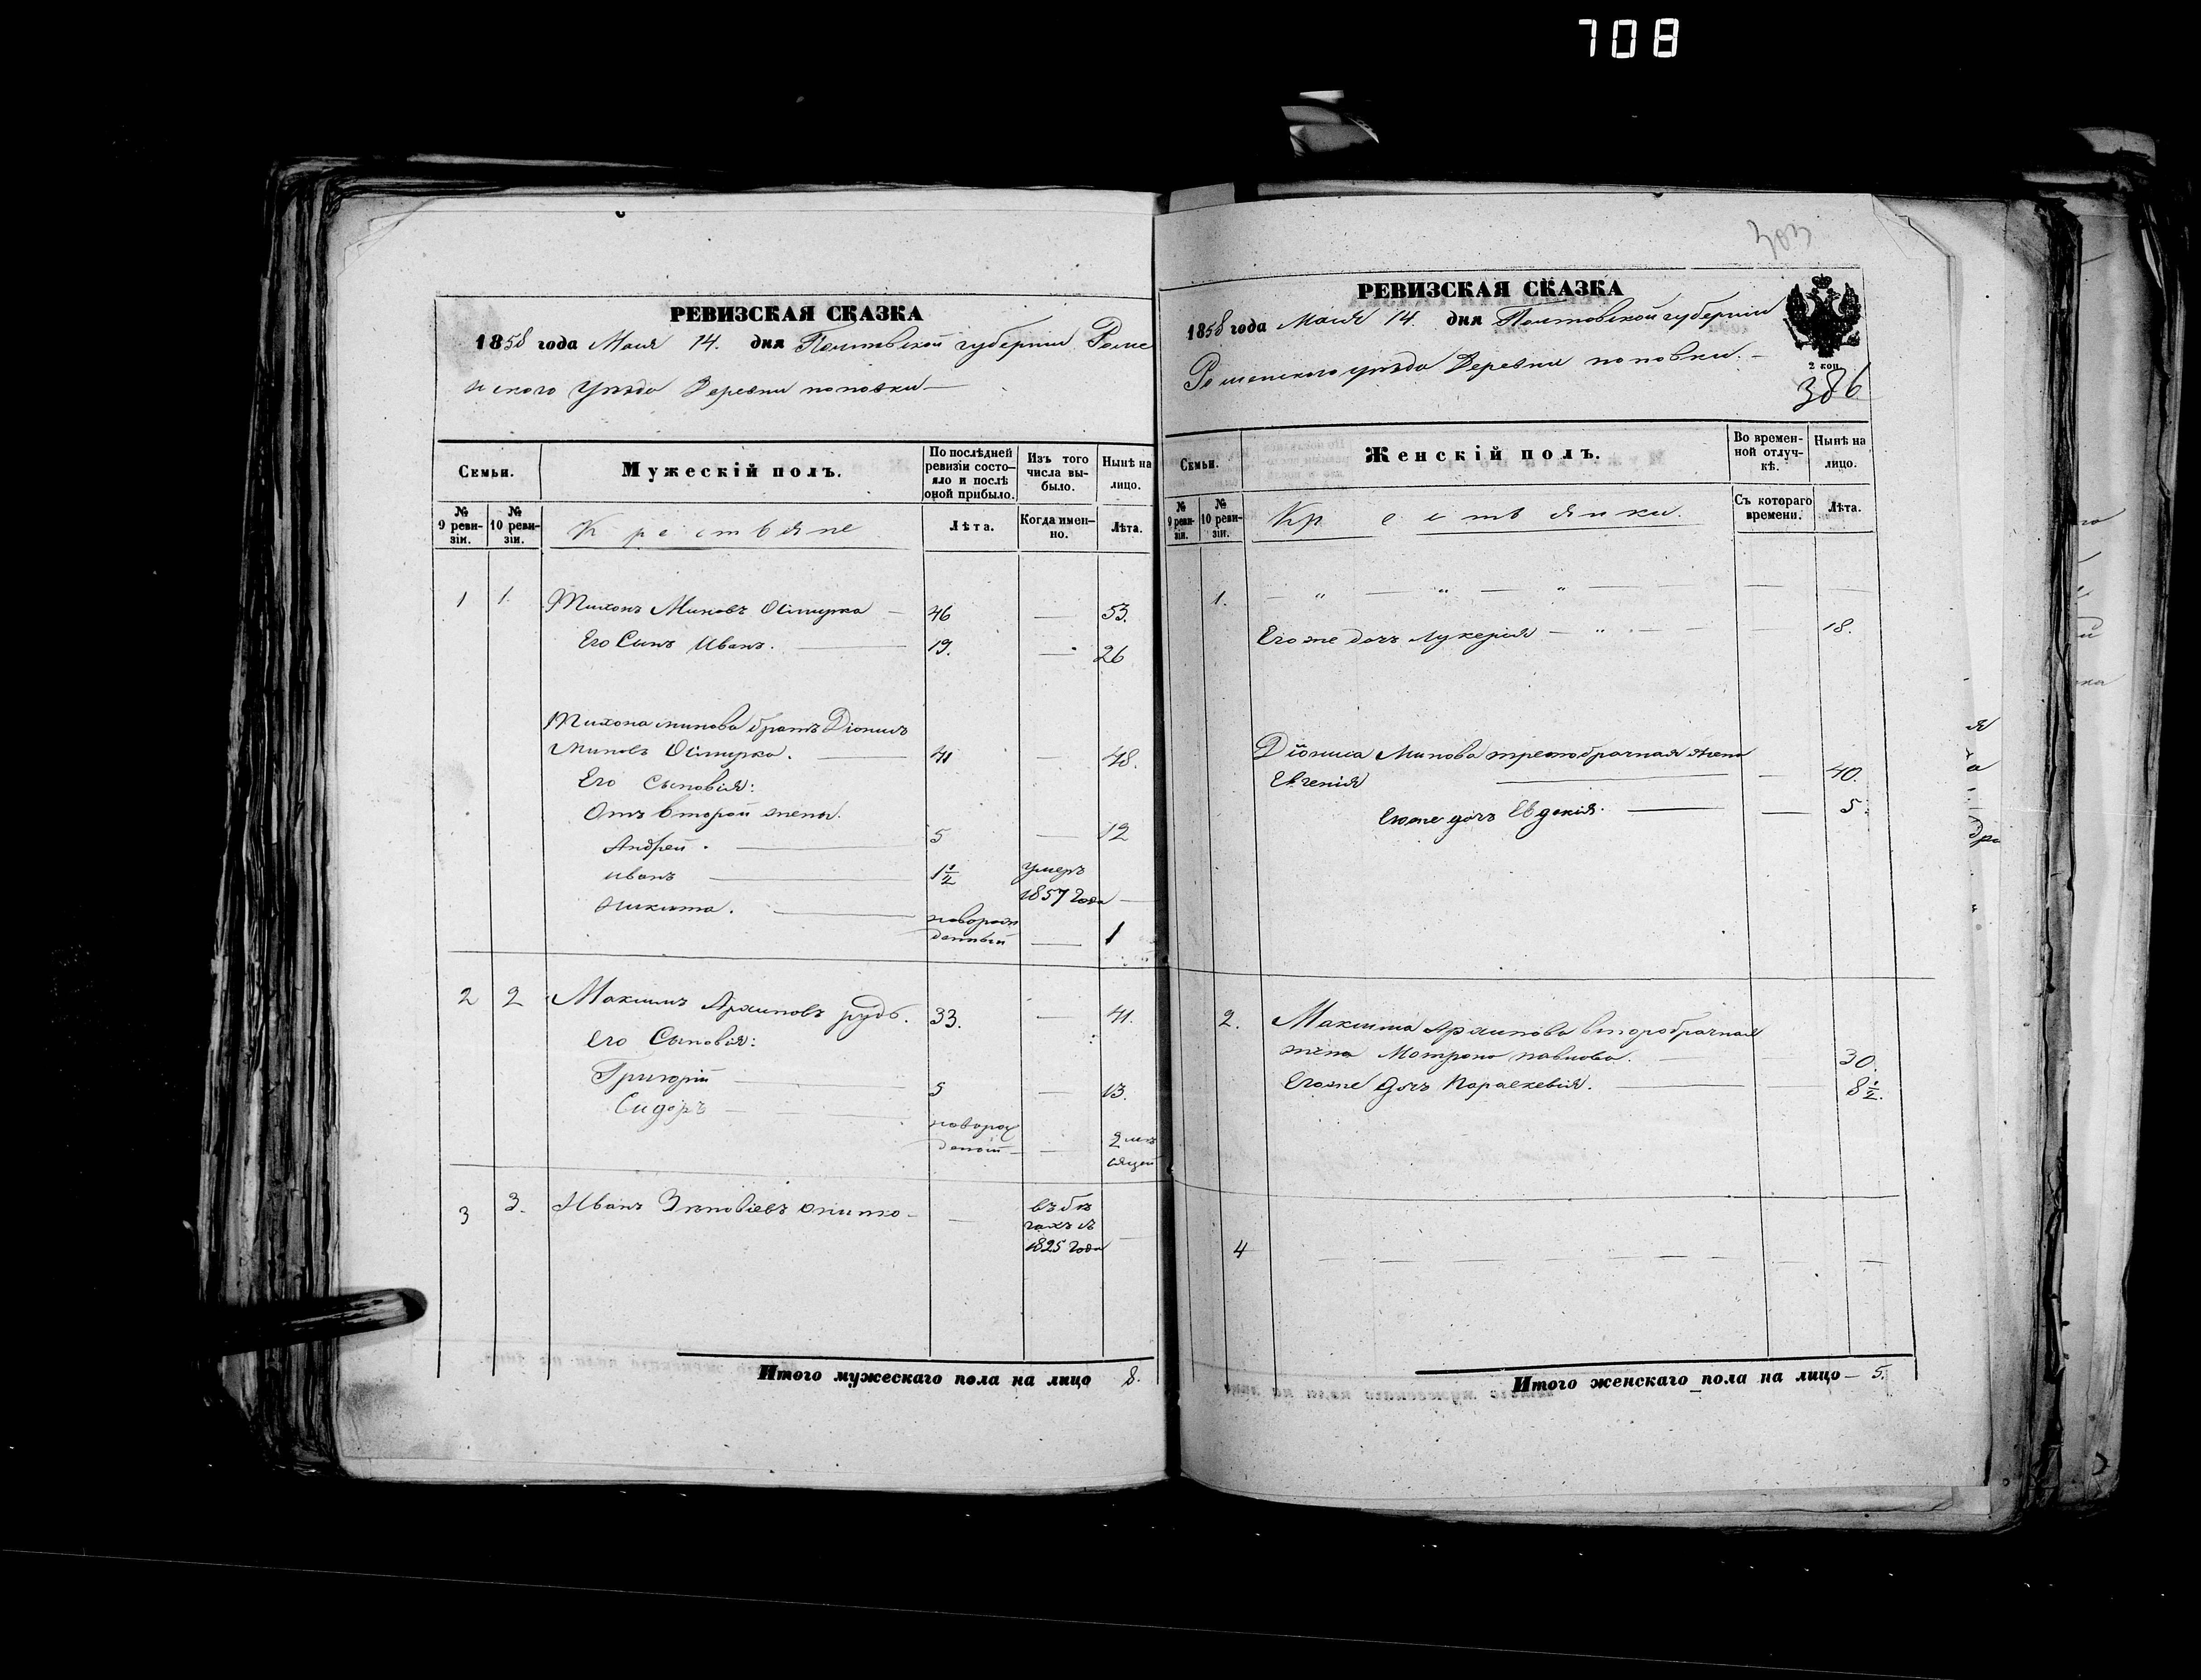 708
РЕВИЗСКАЯ СКАЗКА
1858 года Мая 14. дня Полтавской губернии Роме
нского уѣзда Деревни поповки —
Семьи.
Мужескій полъ.
По послѣдней ревизіи состо-
яло и послѣ
оной прибыло.
Изъ того
числа вы-
было.
Нынѣ на
лицо.
№
9 реви-
зіи.
№
10 реви-
зіи.
Крестьяне
Лѣта.
Когда имен-
но.
Лѣта.
1 1. Тихонъ Миновъ — 46 — 53.
Его Сынъ Иванъ. — 19. — 26
Тихона минова братъ Діонисъ
Миновъ — 41 — 48.
Его Сыновія:
Отъ второй жены.
Андрей. — 5 — 12
иванъ — 1½ умеръ
1857 года —
никита. — новорож
денный — 1
2 2 Максимъ Архиповъ рудь. 33. — 41.
Его Сыновія:
Григорій — 5 — 13.
Сидоръ — новорож
денный — 2 мѣ
сяцей
3 3. Иванъ — въ бѣ
гахъ съ
1825 года —
Итого мужескаго пола на лицо 8.
303
РЕВИЗСКАЯ СКАЗКА
1858 года Мая 14. дня Полтавской губернии
Роменского уѣзда Деревни поповки. —
2 коп.
386
Семьи.
Женскій полъ.
Во времен-
ной отлуч-
кѣ.
Нынѣ на
лицо.
№
9 реви-
зіи.
№
10 реви-
зіи.
Крестьянки.
Съ котораго
времени.
Лѣта.
1. — „ — „ — „ — — —
Его же дочь Лукерія — „ — — 18.
Діониса Минова третобрачная жена
Евгенія — 40.
Его же дочь Евдокія. — — 5.
2. Максима Архипова второбрачная
жена Мотрона павлова. — 30.
Его же дочь Параскевія. — 8½.
4 — — — — — — — —
Итого женскаго пола на лицо — 5.